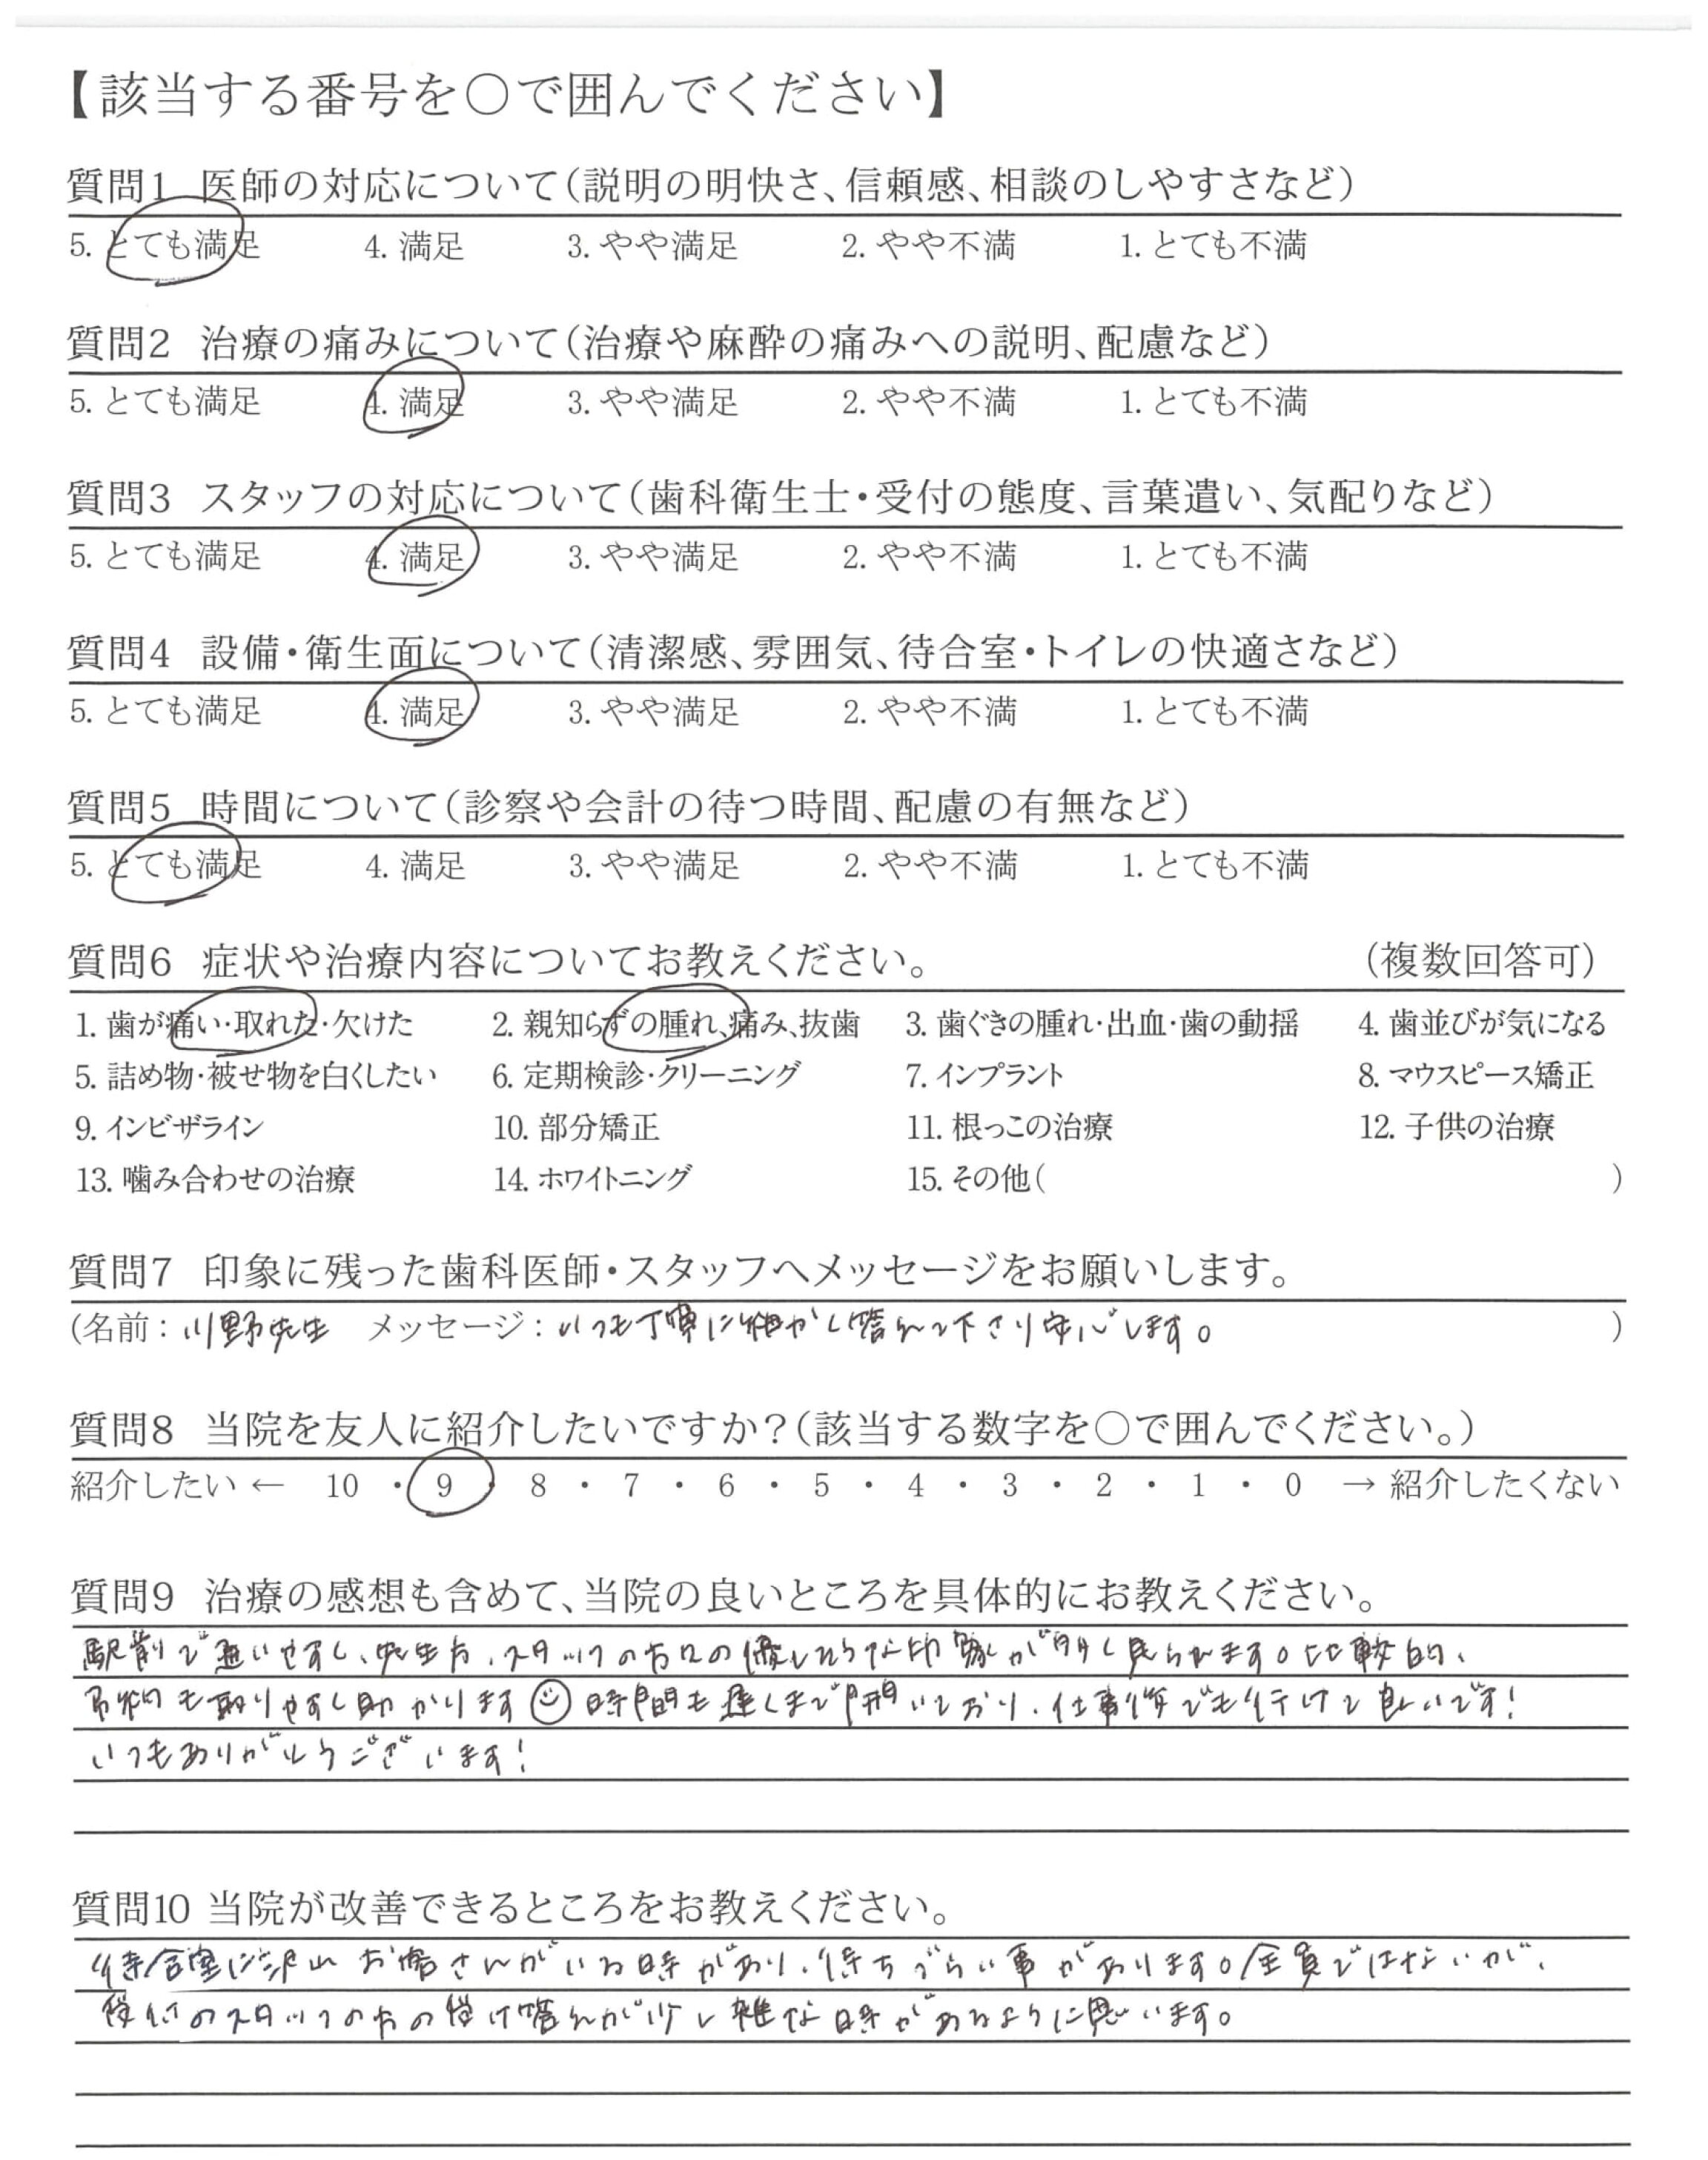 【該当する番号を○で囲んでください】
質問1 医師の対応について(説明の明快さ、信頼感、相談のしやすさなど)
5. とても満足 4. 満足 3. やや満足 2. やや不満 1. とても不満
質問2 治療の痛みについて(治療や麻酔の痛みへの説明、配慮など)
5. とても満足 4. 満足 3. やや満足 2. やや不満 1. とても不満
質問3 スタッフの対応について(歯科衛生士・受付の態度、言葉遣い、気配りなど)
5. とても満足 4. 満足 3. やや満足 2. やや不満 1. とても不満
質問4 設備・衛生面について(清潔感、雰囲気、待合室・トイレの快適さなど)
5. とても満足 4. 満足 3. やや満足 2. やや不満 1. とても不満
質問5 時間について(診察や会計の待つ時間、配慮の有無など)
5. とても満足 4. 満足 3. やや満足 2. やや不満 1. とても不満
質問6 症状や治療内容についてお教えください。 (複数回答可)
1. 歯が痛い・取れた・欠けた 2. 親知らずの腫れ、痛み、抜歯 3. 歯ぐきの腫れ・出血・歯の動揺 4. 歯並びが気になる
5. 詰め物・被せ物を白くしたい 6. 定期検診・クリーニング 7. インプラント 8. マウスピース矯正
9. インビザライン 10. 部分矯正 11. 根っこの治療 12. 子供の治療
13. 噛み合わせの治療 14. ホワイトニング 15. その他( )
質問7 印象に残った歯科医師・スタッフへメッセージをお願いします。
(名前：川野先生 メッセージ：いつも丁寧に細かく答えて下さり安心します。 )
質問8 当院を友人に紹介したいですか？(該当する数字を○で囲んでください。)
紹介したい ← 10 ・ 9 ・ 8 ・ 7 ・ 6 ・ 5 ・ 4 ・ 3 ・ 2 ・ 1 ・ 0 → 紹介したくない
質問9 治療の感想も含めて、当院の良いところを具体的にお教えください。
駅前で通いやすく、先生方、スタッフの方々の優しそうな印象が多く見られます。比較的、
予約も取りやすく助かります☺時間も遅くまで開いており、仕事後でも行けて良いです！
いつもありがとうございます！
質問10 当院が改善できるところをお教えください。
待合室に沢山お客さんがいる時があり、待ちづらい事があります。全員ではないが、
受付のスタッフの方の受け答えが少し雑な時があるように思います。